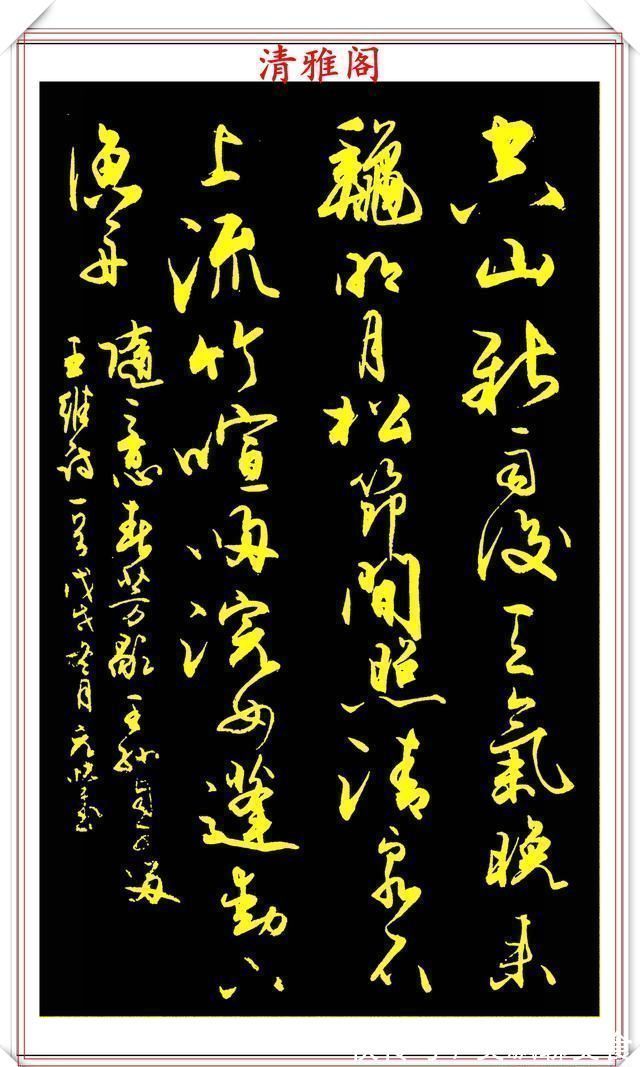 清雅阁
空山新雨後天氣晚来
龝明月松節間照清泉石
上流竹喧歸浣女蓮動下
漁舟
隨意春芳歇王孫自可留
王維詩一首戊戌月